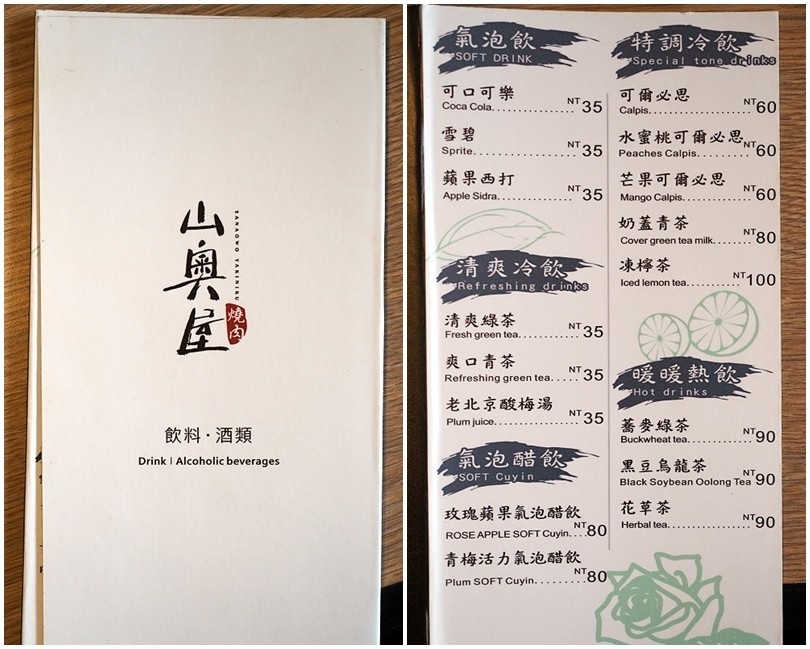 山奧屋
SANAOWO YAKINIKU
燒肉
飲料·酒類
Drink | Alcoholic beverages
氣泡飲
SOFT DRINK
可口可樂
Coca Cola.................NT35
雪碧
Sprite.....................NT35
蘋果西打
Apple Sidra...............NT35
清爽冷飲
Refreshing drinks
清爽綠茶
Fresh green tea..........NT35
爽口青茶
Refreshing green tea.....NT35
老北京酸梅湯
Plum juice................NT35
氣泡醋飲
SOFT Cuyin
玫瑰蘋果氣泡醋飲
ROSE APPLE SOFT Cuyin....NT80
青梅活力氣泡醋飲
Plum SOFT Cuyin.........NT80
特調冷飲
Special tone drinks
可爾必思
Calpis.....................NT60
水蜜桃可爾必思
Peaches Calpis...........NT60
芒果可爾必思
Mango Calpis.............NT60
奶蓋青茶
Cover green tea milk.......NT80
凍檸茶
Iced lemon tea...........NT100
暖暖熱飲
Hot drinks
蕎麥綠茶
Buckwheat tea............NT90
黑豆烏龍茶
Black Soybean Oolong Tea NT90
花草茶
Herbal tea................NT90